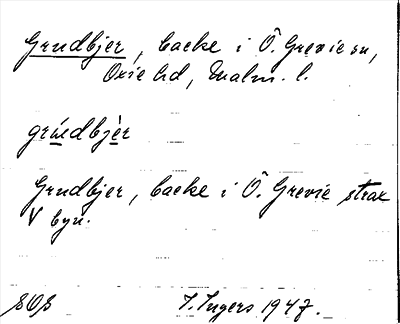 Grudbjer, backe i Ö. Grevie sn,
Oxie hd, Malm. l.
grúdbjèr
Grudbjer, backe i Ö. Grevie strax
V byn.
SOS I. Ingers 1947.